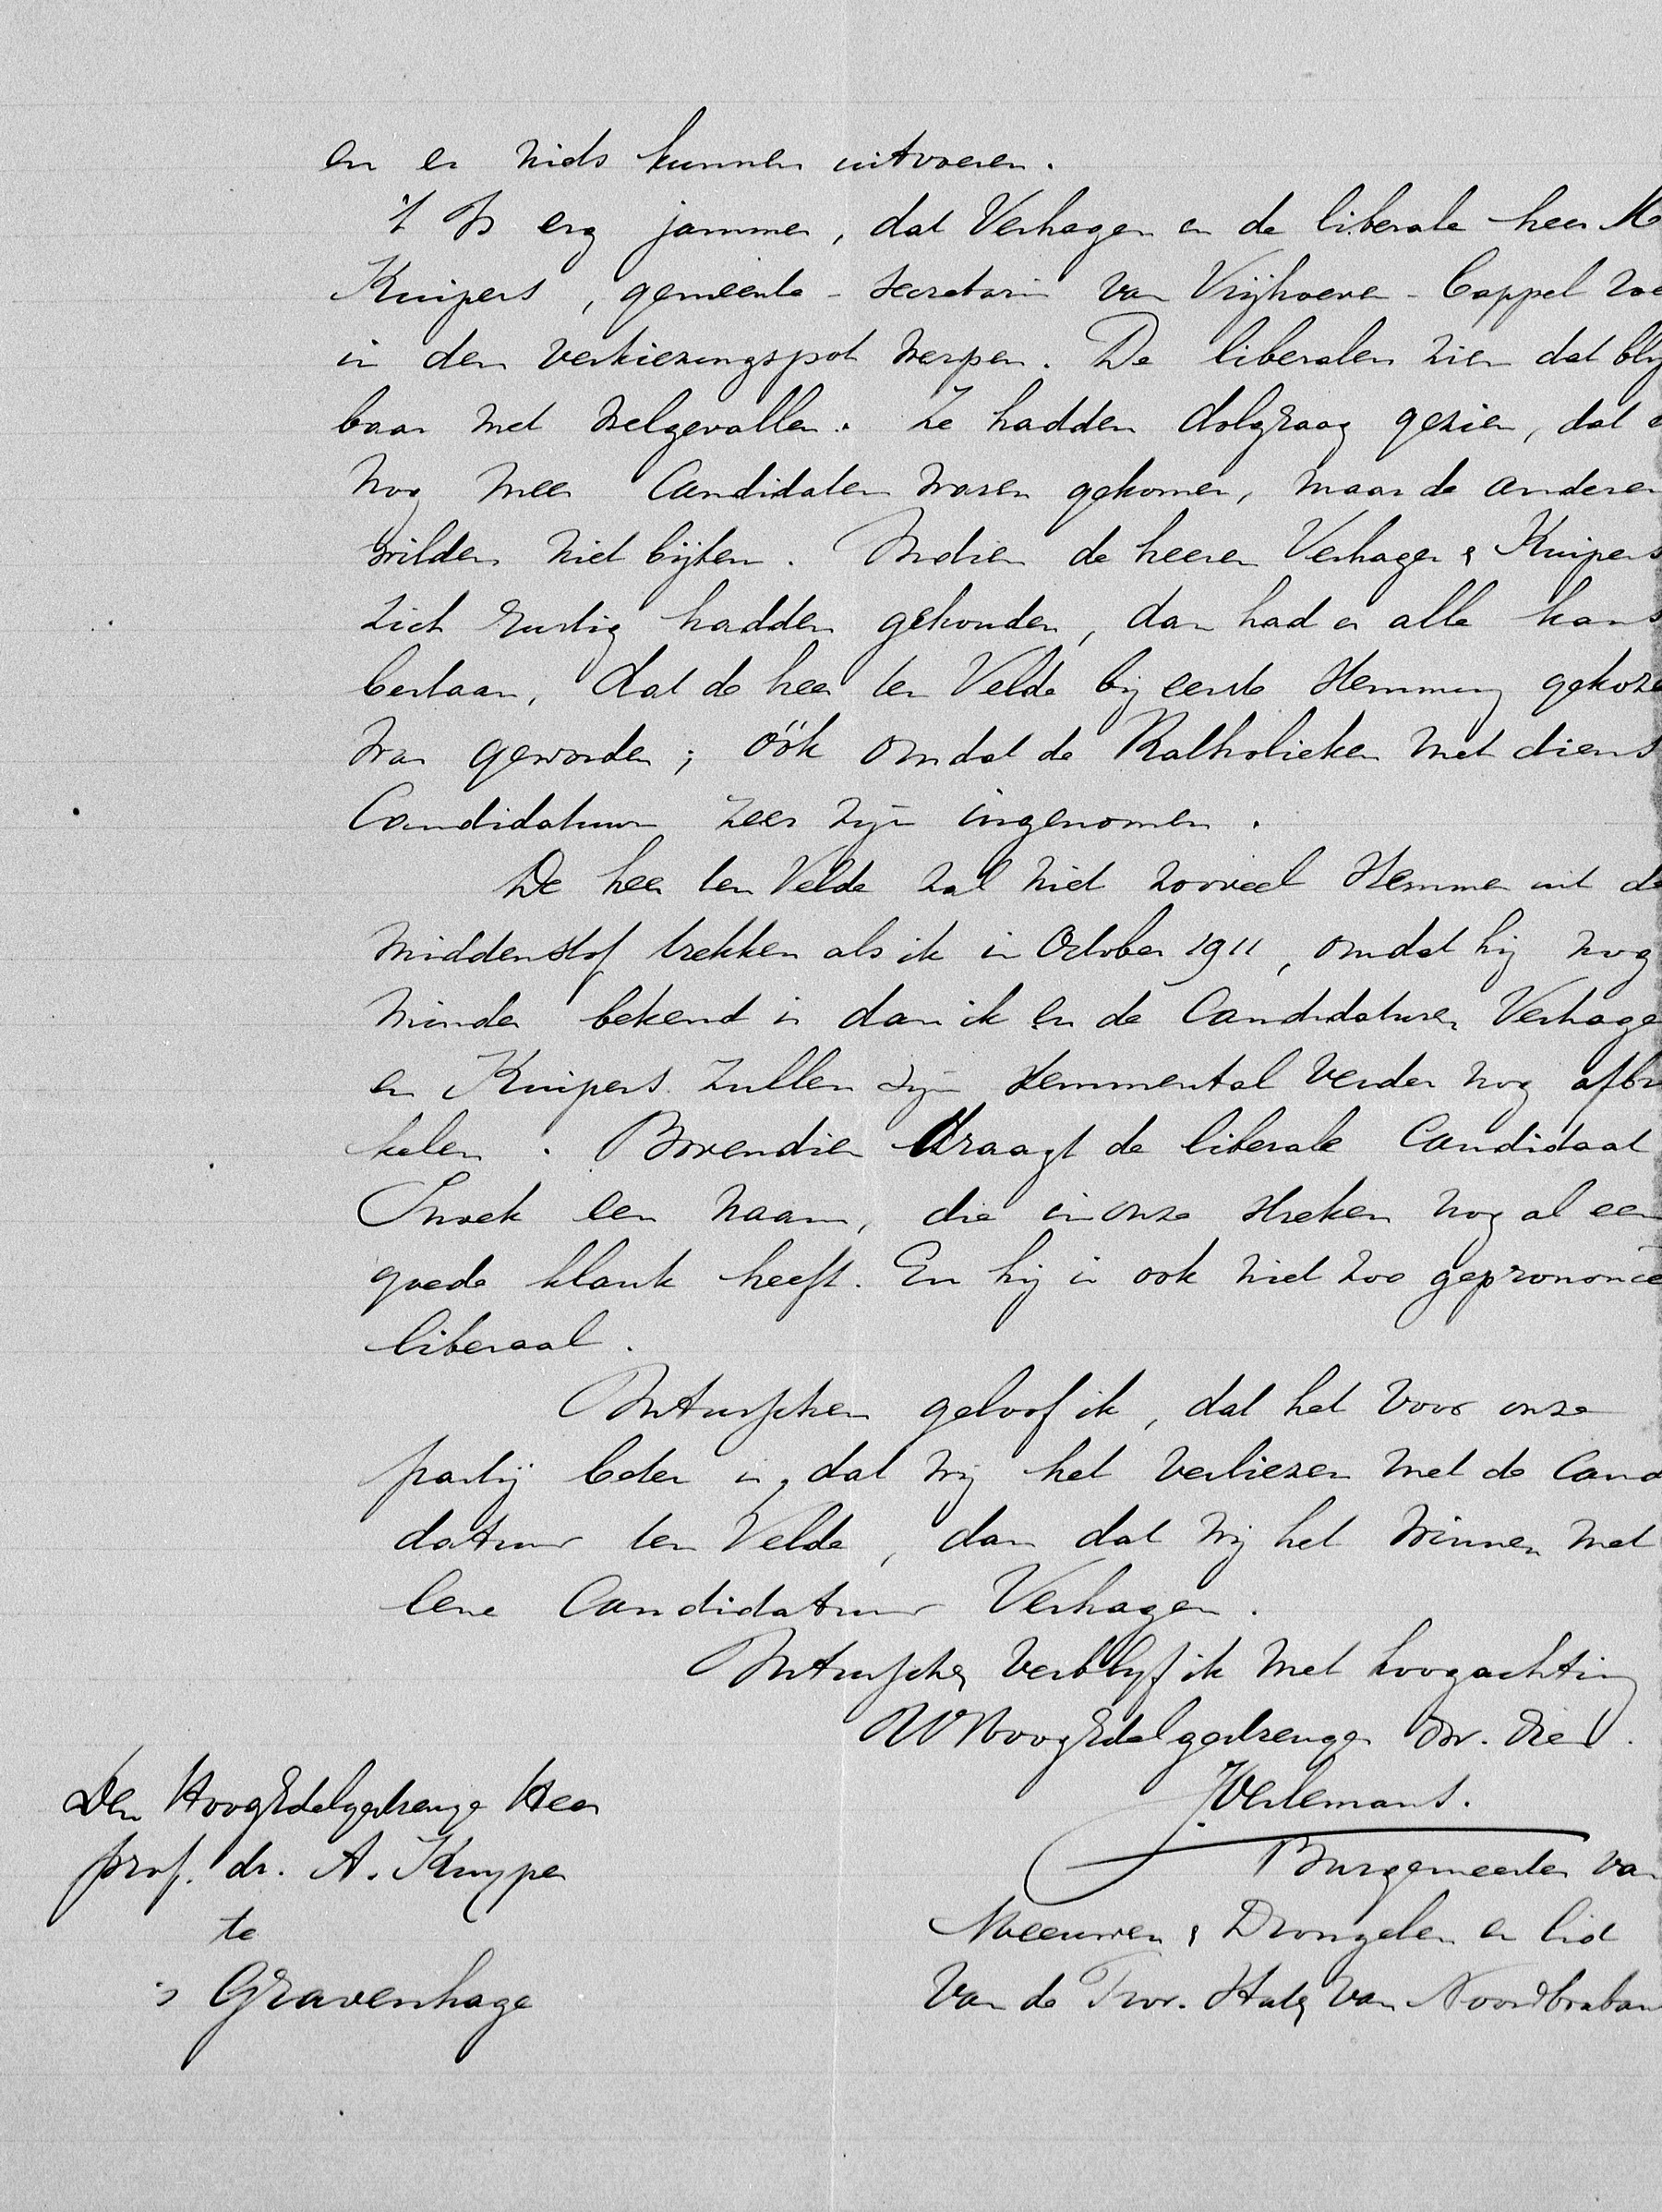 en er niets kunnen uitvoeren.
't Is erg jammer, dat Verhagen en de liberale heer M
Kuipers, gemeente-secretaris van Vrijhoeve-Cappel roe
in den verkiezingspot werpen. De liberalen zien dat bly
baar met welgevallen. Ze hadden dolgraag gezien, dat e
nog meer Candidaten waren gekomen, maar de anderen
wilden niet bijten. Indien de heeren Verhagen & Kuipers
zich rustig hadden gehouden, dan had er alle kans
bestaan, dat de heer ter Velde bij eerste stemming gekoze
was geworden; óók omdat de Katholieken met diens
Candidatuur zeer zijn ingenomen.
De heer ter Velde zal niet zooveel stemmen uit de
middenstof trekken als ik in October 1911, omdat hij nog
minder bekend is dan ik en de Candidaturen Verhage
en Kuipers zullen zijn stemmental verder nog afbr
kelen. Bovendien draagt de liberale Candidaat
Snoek een naam, die in onze streken nog al een
goede klank heeft. En hij is ook niet zoo geprononce
liberaal.
Intusschen geloof ik, dat het voor onze
partij beter is, dat wij het verliezen met de Cand
datuur ter Velde, dan dat wij het winnen met
eene Candidatuur Verhagen.
Intusschen verblijf ik met hoogachting
UHoogEdelgestrenge dw. dien.
J Verlemans.
Burgemeester va
Meeuwen & Drongelen en lid
van de Prov. Staten van Noordbraban
Den HoogEdelgestrenge Heer
prof. dr. A. Kuyper
te
's Gravenhage